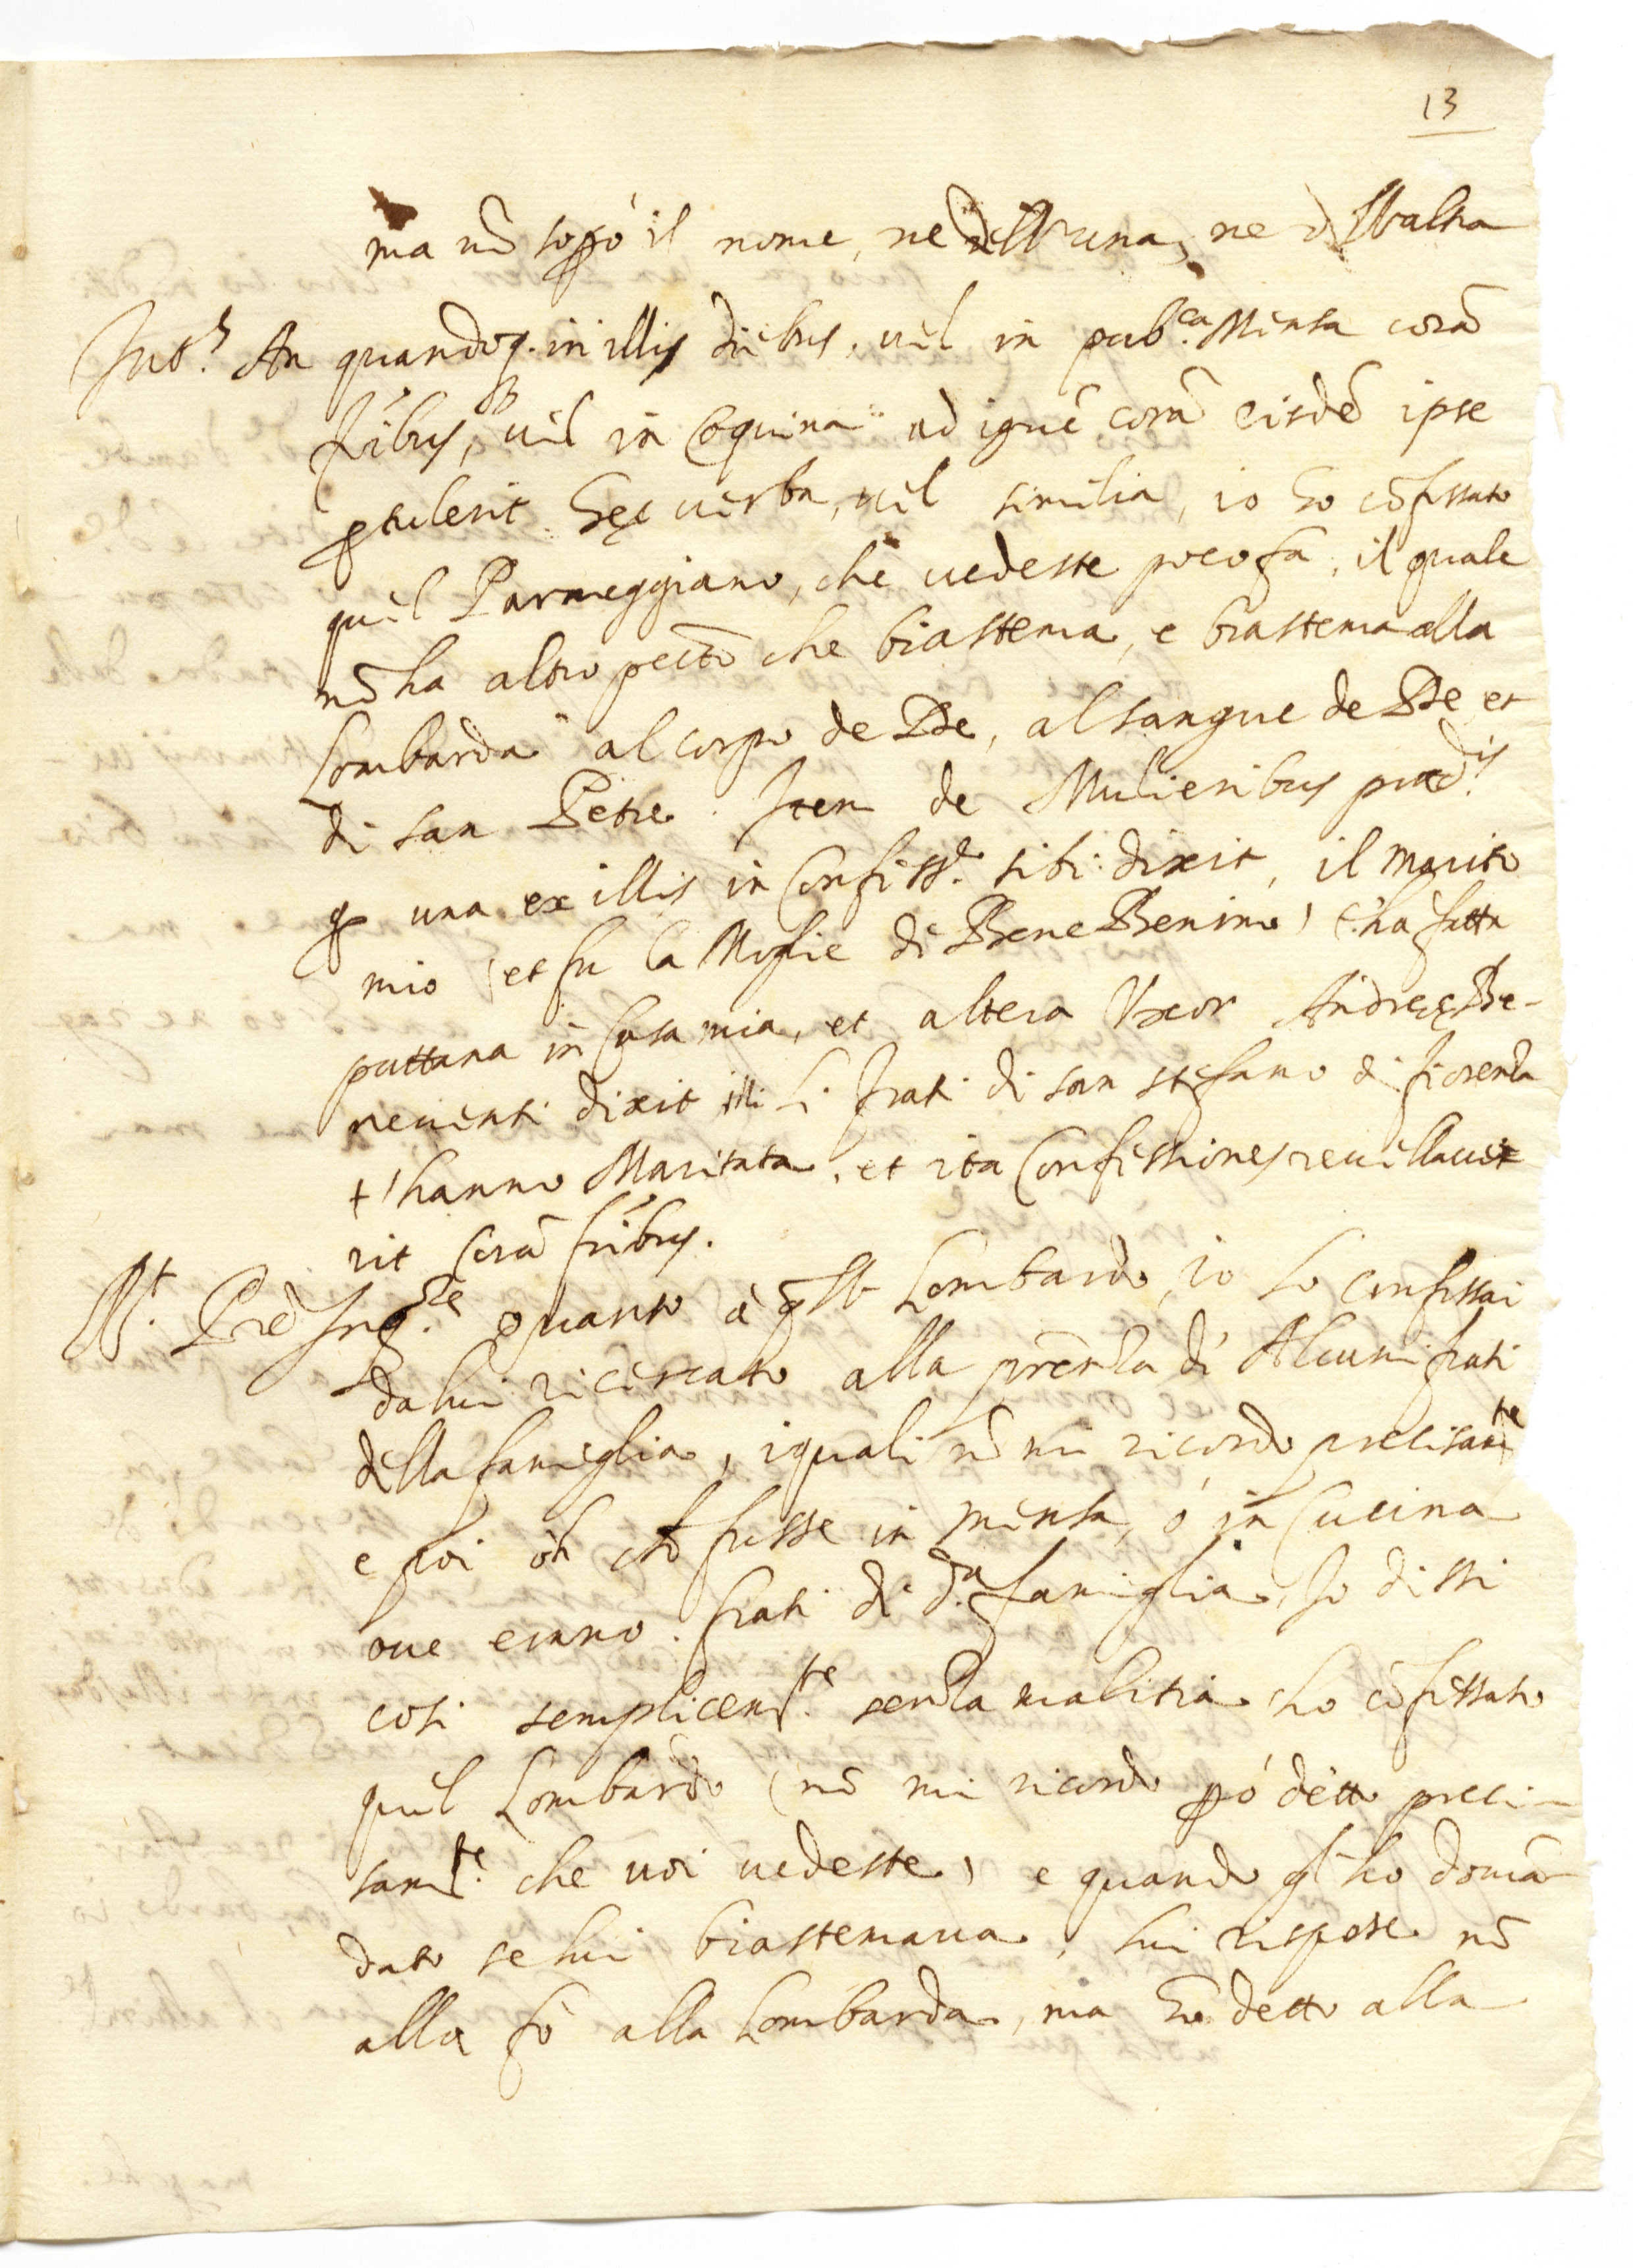 13
ma nõ so pò il nome, ne dell'una, ne dell'altra
Int.s An quandoq. in illis diebus, vel in pub.ca Mensa corã
fribus, vel in Coquina ad ignẽ corã eisdẽ ipse
ptulerit hęc verba, vel similia, io ho cõfessato
quel Parmeggiano, che vedeste poco fa, il quale
nõ ha altro pectõ che biastema, e biastema alla
Lombarda al corpo de De, al sangue de De et
di san Petre. Item de Mulieribus pred.is
q una ex illis in Confess.e sibi dixit, il marito
mio (et fu la Moglie di Bene Benino) c'ha fatta
puttana in Casa mia, et altera Uxor Andreę Be-
neventi dixit illi li frati di san stefano di fiorenza
+ l'hanno Maritata, et ita Confessiones revellave
rit Corã fribus.
R.t Prẽ Inq.re quanto à qsto Lombardo, io lo confessai
da lui ricercato alla prẽnza di Alcuni frati
della famiglia, i quali nõ mi ricordo precisamte
e poi ò che fusse in mensa, ò in Cucina
ove erano frati di d.a famiglia, Io dissi
cosi semplicem.te senza malitia ho cõfessato
quel Lombardo (nõ mi ricordo pò detto preci-
sam.te che voi vedeste) e quando gl'ho domã
dato se lui biastemava, lui rispose nõ
alla fò alla Lombarda, ma ho detto alla